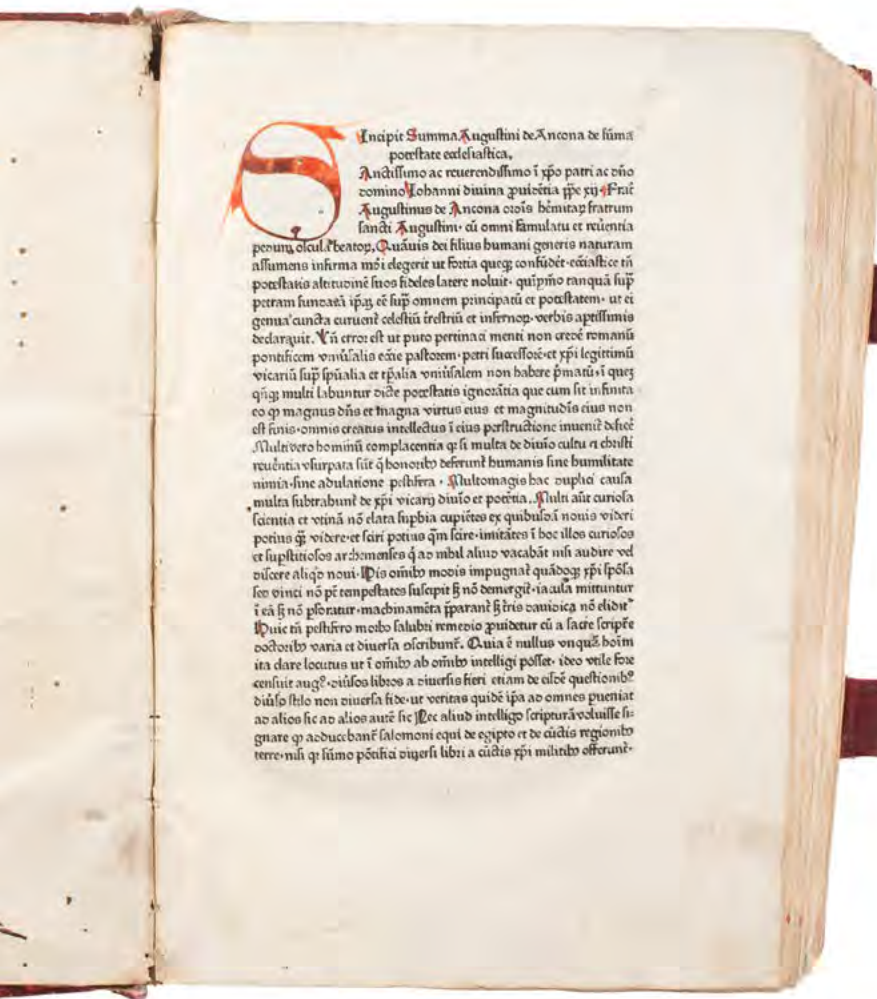 Incipit Summa Augustini de Ancona de sūma
potestate ecclesiastica,
S Anctissimo ac reuerendissimo ī xp̄o patri ac dn̄o
domino Iohanni diuina ꝓuidētia pp̄e xij Frat̄
Augustinus de Ancona ordīs hēmitaꝝ fratrum
sancti Augustini· cū omni famulatu et reūentia
pedum oscula beatoꝝ, Quāuis dei filius humani generis naturam
assumens infirma mōi elegerit ut fortia queqꝫ confūdēt· ecc̄iastice tn̄
potestatis altitudinē suos fideles latere noluit· quīpmo tanquā sup̄
petram fundatā ip̄aꝫ eē sup̄ omnem principatū et potestatem· ut ei
genua cuncta curuent̄ celestiū t̄restriū et infernoꝝ· verbis aptissimis
declarauit. Vn̄ error est ut puto pertinaci menti non credē romanū
pontificem vniūsalis ecc̄ie pastorem· petri successorē· et xp̄i legittimū
vicariū sup̄ sp̄ualia et tp̄alia vniūsalem non habere p̄matū· ī queꝫ
qn̄qꝫ multi labuntur dicte potestatis ignorātia que cum sit infinita
eo ꝙ magnus dn̄s et magna virtus eius et magnitudīs eius non
est finis· omnis creatus intellectus ī eius perstructione inuenit̄ deficē
Multi vero hominū complacentia qꝛ si multa de diuīo cultu a christi
reūentia vsurpata sūt q̄ honoribꝫ deferunt̄ humanis siue humilitate
nimia· siue adulatione pestifera · Multomagis hac duplici causa
multa subtrahunt de xp̄i vicarij diuīo et potētia. Multi aūt curiosa
scientia et vtinā nō elata supbia cupiētes ex quibusdā nouis videri
potius qꝫ videre· et sciri potius qm̄ scire· imitātes ī hoc illos curiosos
et supstitiosos archemenses q̄ ad nihil aliud vacabāt nisi audire vel
discere aliqd noui· His om̄ibꝫ modis impugnat̄ quādoqꝫ xp̄i spōsa
sed vinci nō pt̄ tempestates suscipit sꝫ nō demergit̄· iacula mittuntur
ī eā sꝫ nō pforatur· machinamēta p̄parant̄ sꝫ t̄ris dauidica nō elidit̄
Huic tn̄ pestifero morbo salubri remedio ꝓuidetur cū a sacre scriptr̄e
doctoribꝫ varia et diuersa dscribunt̄. Quia ē nullus vnquā hoīm
ita clare locutus ut ī om̄ibꝫ ab om̄ibꝫ intelligi posset· ideo vtile fore
censuit augꝰ· diūsos libros a diuersis fieri etiam de eisdē questionibꝰ
diūso stilo non diuersa fide· ut veritas quidē ip̄a ad omnes pueniat
ad alios sic ad alios autē sic Nec aliud intelligo scripturā voluisse si⸗
gnare ꝙ adducebant̄ salomoni equi de egipto et de cūctis regionibꝫ
terre· nisi qꝛ sūmo pōtifici diuersi libri a cūctis xp̄i militibꝫ offerunt̄·